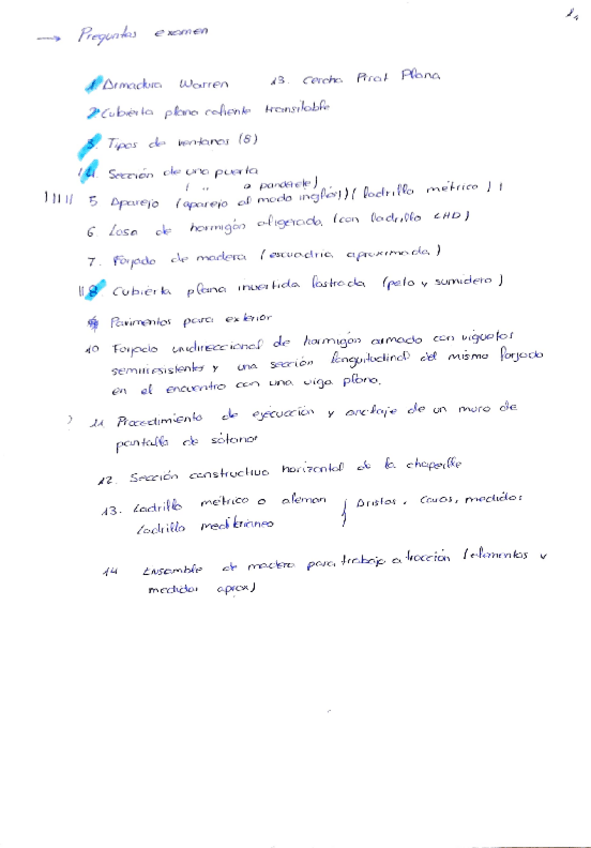 → Preguntas examen
1. Armadura Warren 13. Cercha Prat Plana
2 Cubierta plana caliente transitable
3. Tipos de ventanas (8)
4. Sección de una puerta
( " a panderete)
5 Aparejo (aparejo al modo inglés) (ladrillo métrico)
6. Losa de hormigón aligerada (con ladrillo LHD)
7. Forjado de madera (escuadria aproximada)
8. Cubierta plana invertida lastrada (peto y sumidero)
Pavimentos para exterior
10 Forjado unidireccional de hormigón armado con viguetas
semirresistentes y una sección longuitudinal del mismo forjado
en el encuentro con una viga plana.
11. Procedimiento de ejecución y anclaje de un muro de
pantalla de sótano
12. Sección constructiva horizontal de la
13. Ladrillo métrico o aleman } Aristas, caras, medidas
Ladrillo mediterráneo
14 Ensamble de madera para trabajo a tracción (elementos y
medidas aprox)